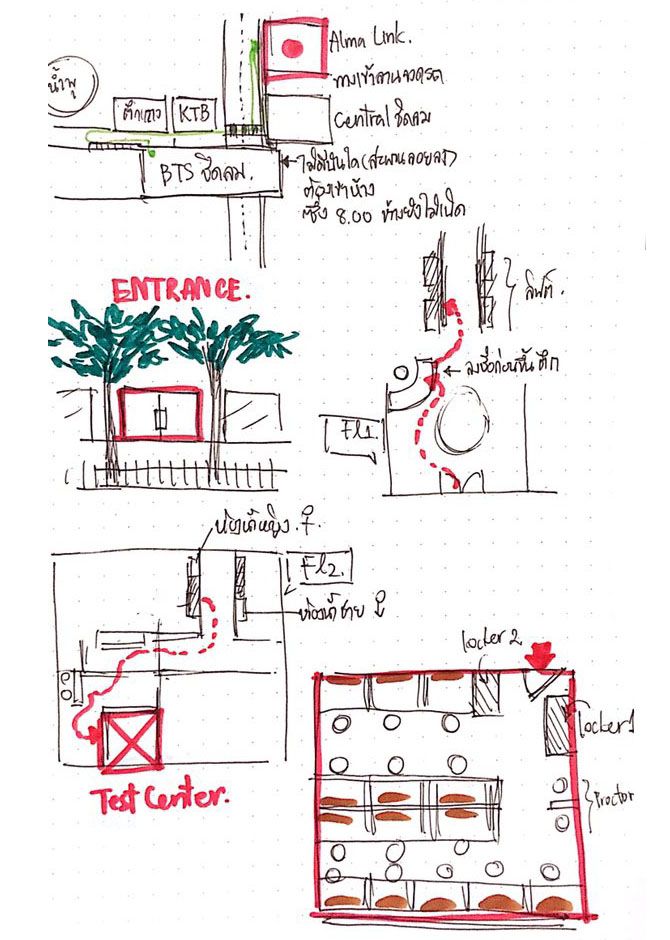 Alma Link.
ทางเข้าลานจอดรถ
น้ำพุ
ตึกแถว
KTB
Central ชิดลม
BTS ชิดลม.
ไม่มีบันได (สะพานลอยลง)
ต้องเข้าห้าง
ซึ่ง 8.00 ห้างยังไม่เปิด
ENTRANCE.
ลิฟต์.
ลงชื่อก่อนขึ้นตึก
Fl1.
ห้องน้ำหญิง.
Fl2.
ห้องน้ำชาย
Test Center.
locker 2
locker 1
Proctor